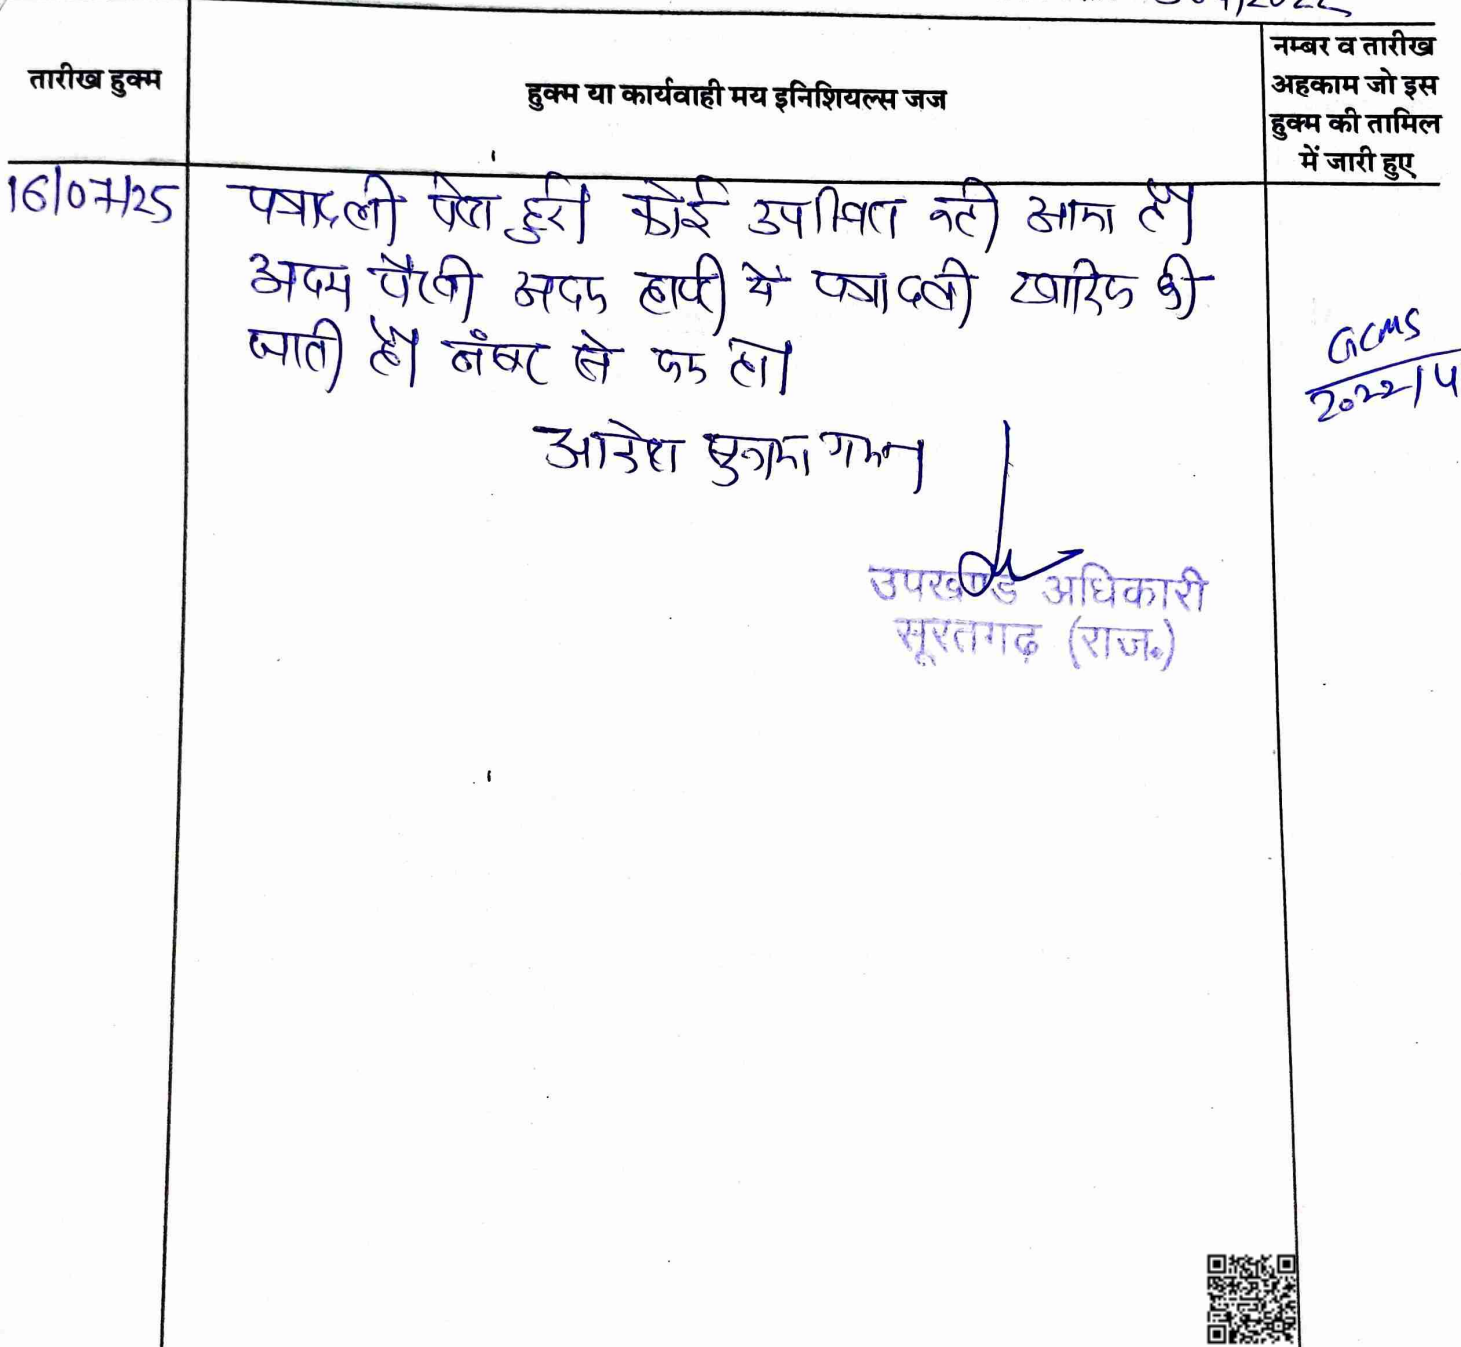 तारीख हुक्म
हुक्म या कार्यवाही मय इनिशियल्स जज
नम्बर व तारीख
अहकाम जो इस
हुक्म की तामिल
में जारी हुए
16/07/25
पत्रावली पेश हुई। कोई उपस्थित नहीं आया है।
अदम पैरवी अदम हाजरी में पत्रावली खारिज की
जाती है। नंबर से कम हो।
आदेश सुनाया गया।
GCMS
2022/4
उपखण्ड अधिकारी
सूरतगढ़ (राज.)